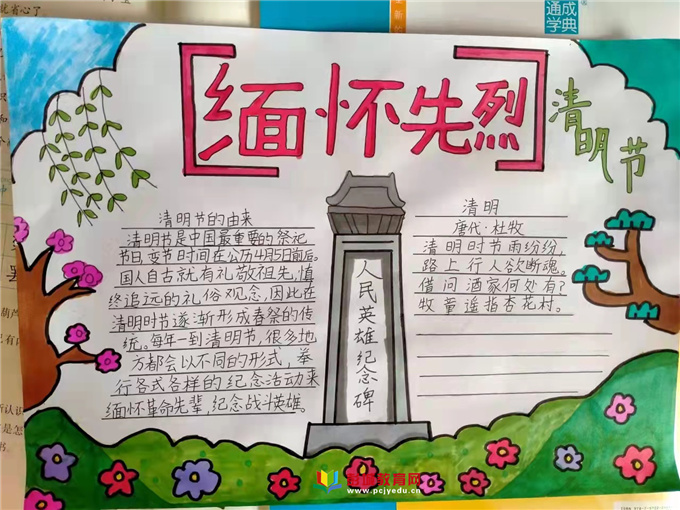 通成
学典
缅怀先烈
清明节
清明节的由来
清明节是中国最重要的祭祀
节日,变节时间在公历4月5日前后。
国人自古就有礼敬祖先,慎
终追远的礼俗观念,因此在
清明时节遂渐形成春祭的传
统。每年一到清明节,很多地
方都会以不同的形式,举
行各式各样的纪念活动来
缅怀革命先辈,纪念战斗英雄。
人民英雄纪念碑
清明
唐代·杜牧
清明时节雨纷纷,
路上行人欲断魂。
借问酒家何处有?
牧童遥指杏花村。
教育网
www.pcjyedu.cn